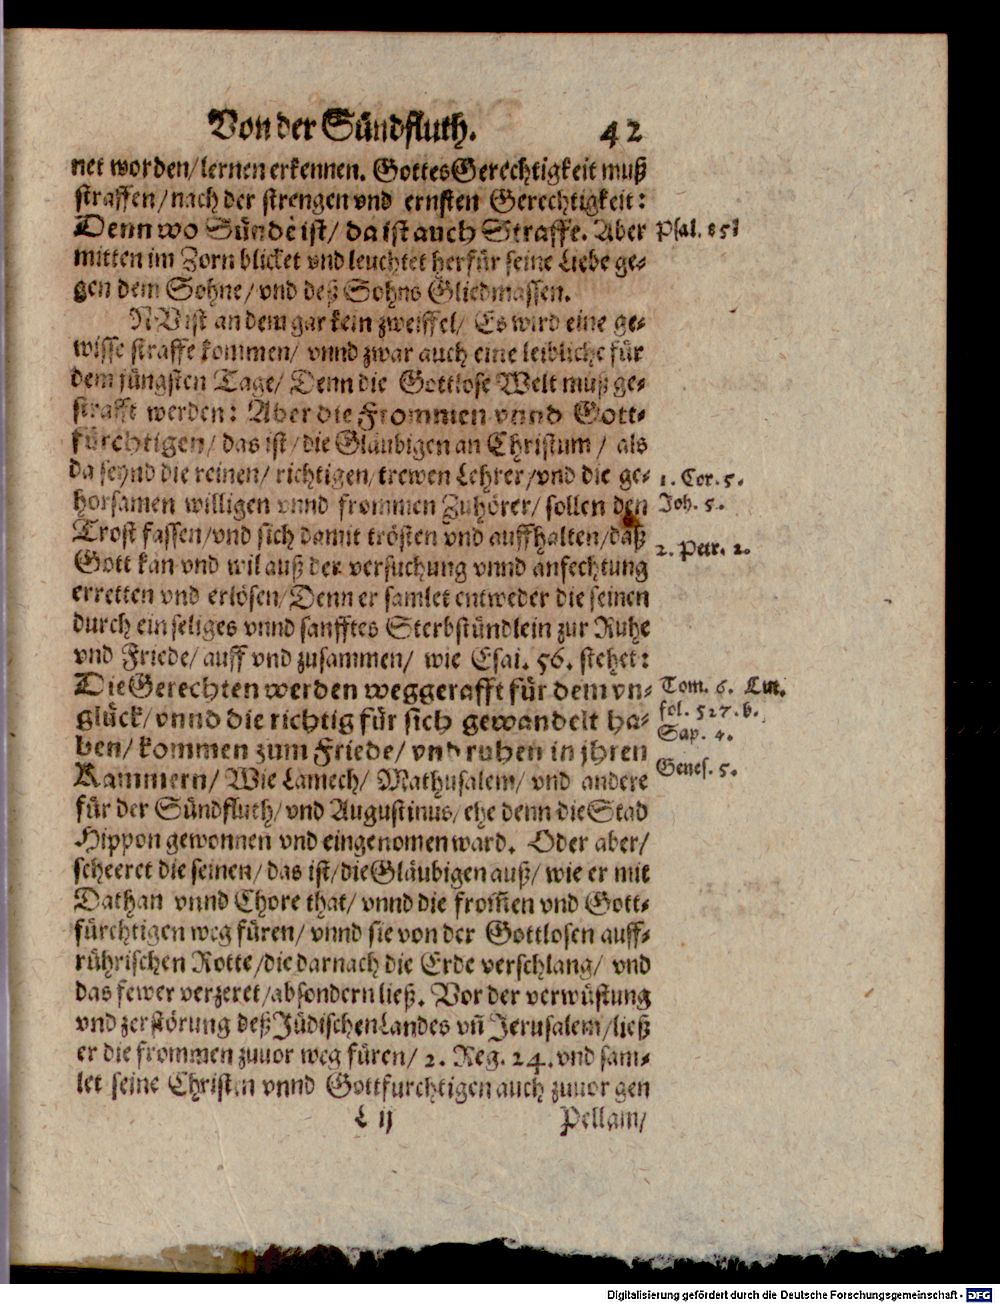 Von der Sündfluth. 42
net worden/ lernen erkennen. Gottes Gerechtigkeit muß
straffen/ nach der strengen vnd ernsten Gerechtigkeit:
Denn wo Sünde ist/ da ist auch Straffe. Aber
Psal. 85
mitten im Zorn blicket vnd leuchtet herfür seine Liebe ge-
gen dem Sohne/ vnd deß Sohns Gliedmassen.
NVist an dem gar kein zweiffel/ Es wird eine ge-
wisse straffe kommen/ vnnd zwar auch eine leibliche für
dem jüngsten Tage/ Denn die Gottlose Welt muß ge-
strafft werden: Aber die Frommen vnnd Gott-
fürchtigen/ das ist/ die Gläubigen an Christum/ als
da seynd die reinen/ richtigen/ trewen Lehrer/ vnd die ge-
1. Cor. 5.
horsamen willigen vnnd frommen Zuhörer/ sollen den
Joh. 5.
Trost fassen/ vnd sich damit trösten vnd auffhalten/ daß
2. Petr. 2.
Gott kan vnd wil auß der versuchung vnnd anfechtung
erretten vnd erlösen/ Denn er samlet entweder die seinen
durch ein seliges vnnd sanfftes Sterbstündlein zur Ruhe
vnd Friede/ auff vnd zusammen/ wie Esai. 56. stehet:
Die Gerechten werden weggerafft für dem vn-
Tom. 6. Lut.
glück/ vnnd die richtig für sich gewandelt ha-
fol. 527. b.
ben/ kommen zum Friede/ vnd ruhen in jhren
Sap. 4.
Kammern/ Wie Lamech/ Mathusalem/ vnd andere
Genes. 5.
für der Sündfluth/ vnd Augustinus/ ehe denn die Stad
Hippon gewonnen vnd eingenomen ward. Oder aber/
scheeret die seinen/ das ist/ die Gläubigen auß/ wie er mit
Dathan vnnd Chore that/ vnnd die from̃en vnd Gott-
fürchtigen weg füren/ vnnd sie von der Gottlosen auff-
rührischen Rotte/ die darnach die Erde verschlang/ vnd
das fewer verzeret/ absondern ließ. Vor der verwüstung
vnd zerstörung deß Jüdischen Landes vñ Jerusalem/ ließ
er die frommen zuuor weg füren/ 2. Reg. 24. vnd sam-
let seine Christen vnnd Gottfurchtigen auch zuuor gen
L ij Pellam/
Digitalisierung gefördert durch die Deutsche Forschungsgemeinschaft - DFG